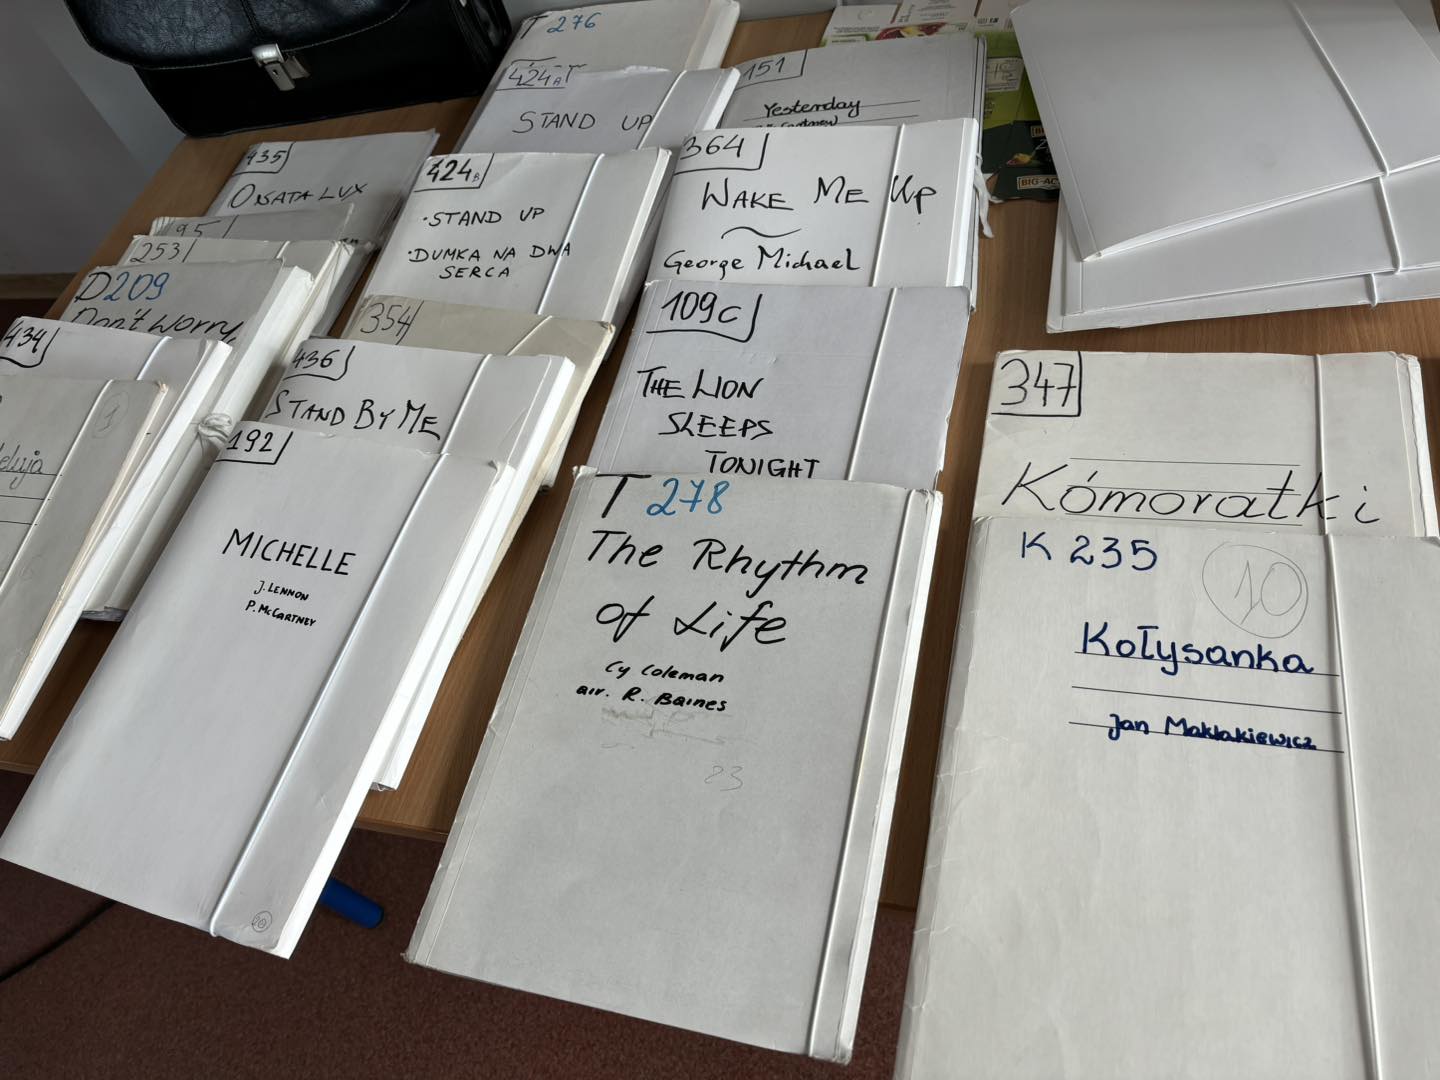 T 276
424A
STAND UP
151
Yesterday
435
O NATA LUX
424B
• STAND UP
• DUMKA NA DWA
SERCA
364
WAKE ME UP
George Michael
95
253
D209
Don't worry,
434
354
436
STAND BY ME
109c
THE LION
SLEEPS
TONIGHT
192
MICHELLE
J. LENNON
P. McCARTNEY
20
T 278
The Rhythm
of Life
Cy Coleman
arr. R. Baines
23
347
Kómoratki
K 235
10
Kołysanka
Jan Maklakiewicz
BIG-AC